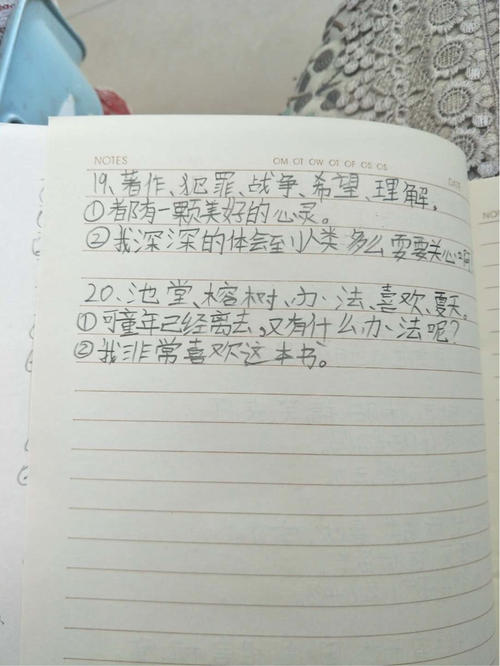 NOTES OM OT OW OT OF OS OS DATE
19、著作、犯罪、战争、希望、理解。
①都有一颗美好的心灵。
②我深深的体会到人类多么需要关心啊
20、池堂、榕树、办法、喜欢、夏天。
①可童年已经离去,又有什么办法呢?
②我非常喜欢这本书。
NO